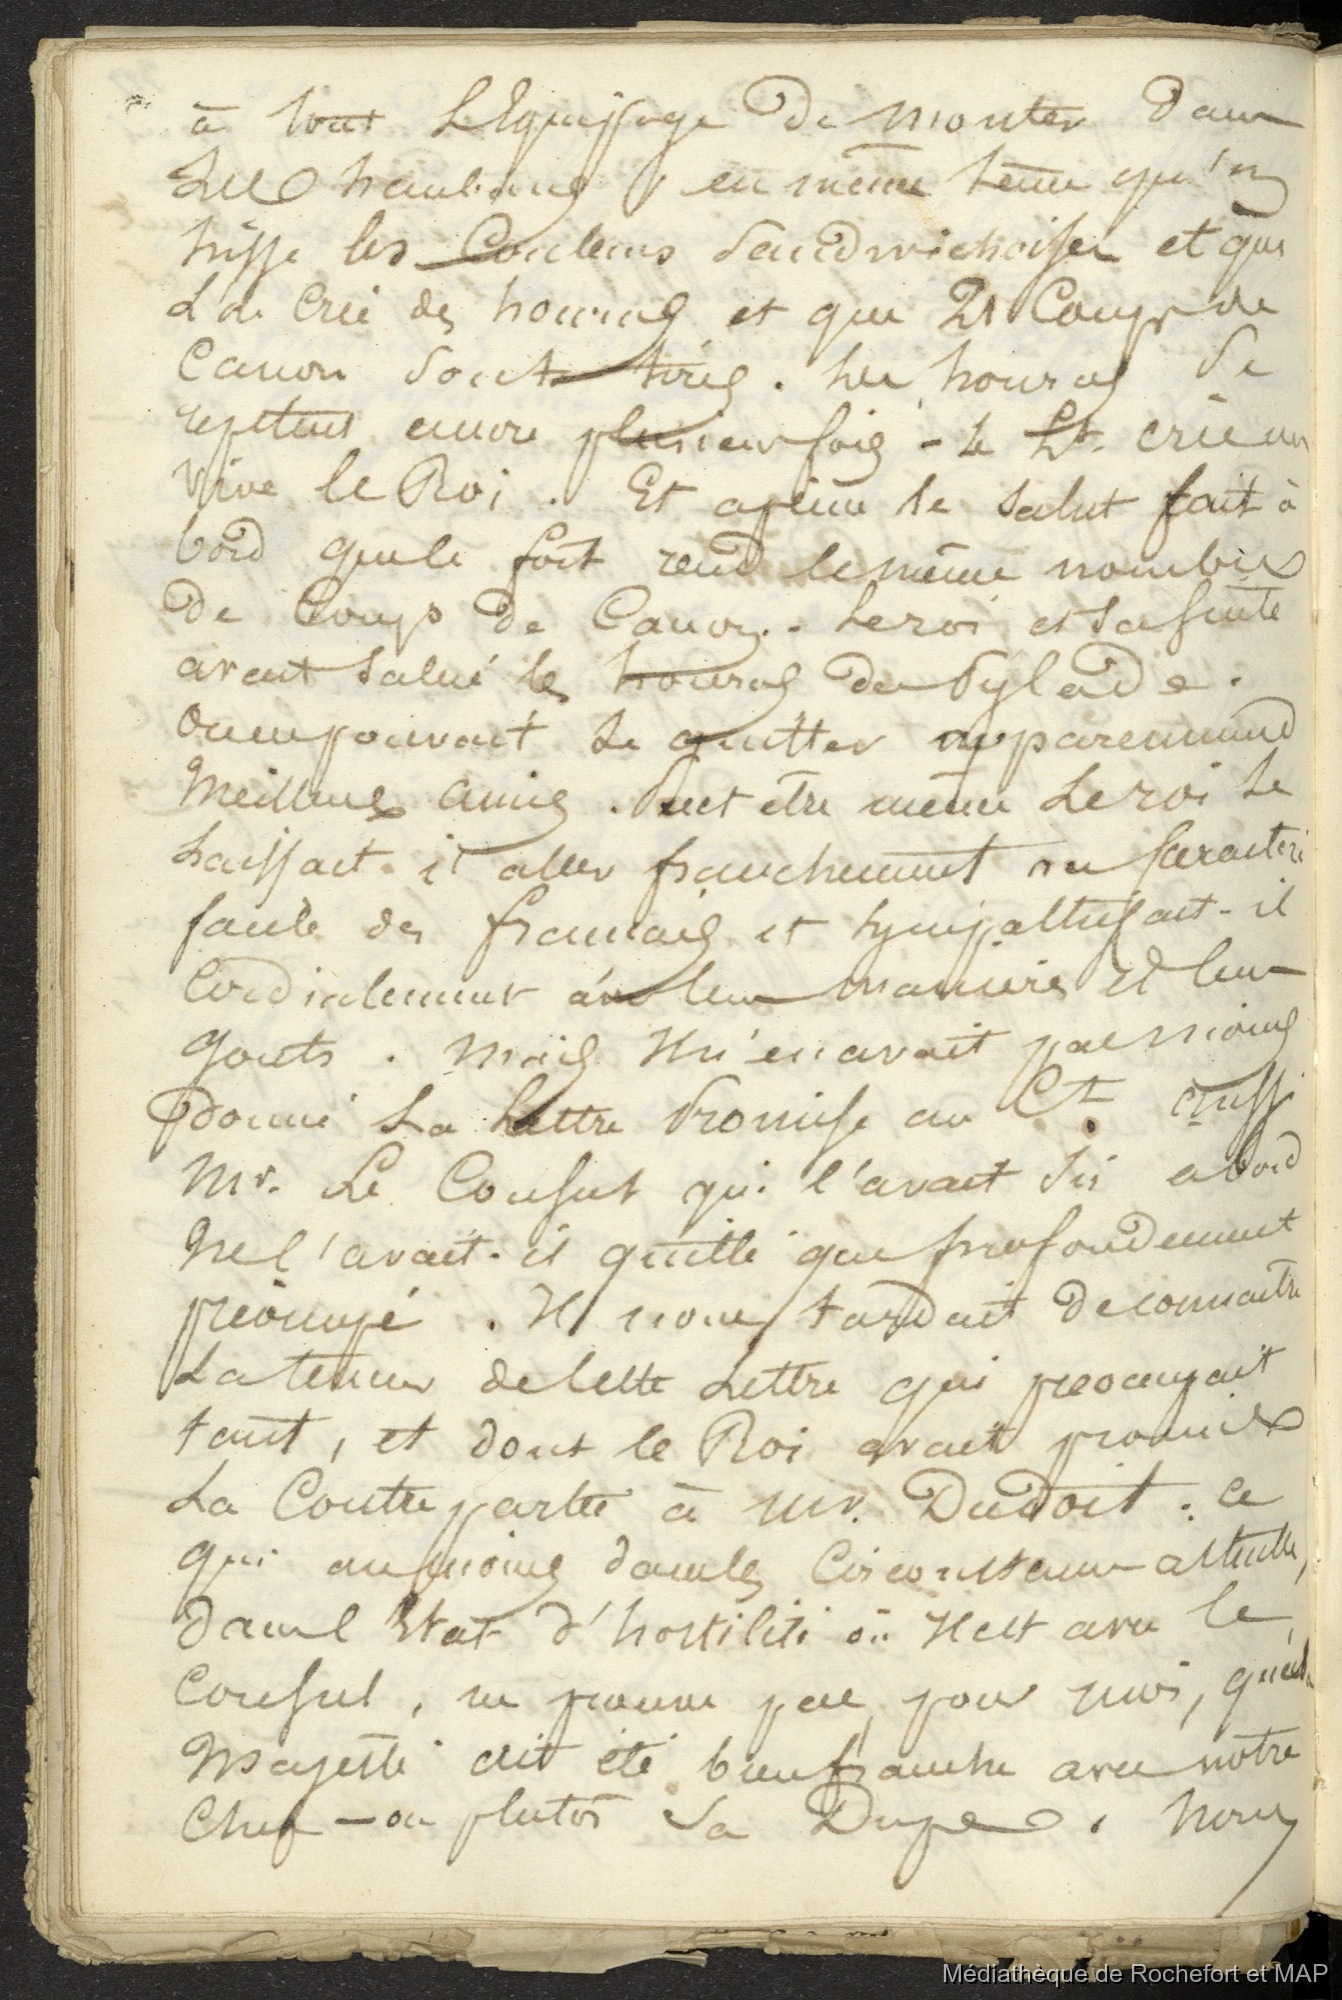 à tout L'Equipage de monter dans
Les haubans, en même tems qu'on
hisse les Couleurs Sandwichoises et que
L'on Crie des houras et que 21 Coups de
Canon sont tirés. Les houras se
repetent encore plusieurs fois - Le Ct. crie un
Vive le Roi. Et à peine le salut fait à
bord que le fort rend le même nombre
de Coups de Canon. - Le roi et sa suite
avait salué les houras du Pylade.
On ne pouvait se quitter apparemment
Meilleurs amis. Peut être même Le roi se
Laissait-il aller franchement au Caractère
facile des français et sympathisait-il
Cordialement avec leur manière et leur
gouts. Mais Il n'en avait pas moins
donné La Lettre Promise au Ct. aussi
Mr. Le Consul qui l'avait su abord
Ne l'avait-il quitté que profondement
préocupé. Il nous tardait de connaitre
La teneur de cette Lettre qui preocupait
tant, et dont le Roi avait promis
La Contre partie à Mr. Dudoit. ce
qui au moins dans les Circonstances actuelles,
dans l'Etat d'hostilité où Il est avec le
Consul, ne prouve pas, pour moi, que sa
Majesté ait été bien franche avec notre
Chef - ou plutôt sa Dupe. Nous
Médiathèque de Rochefort et MAP